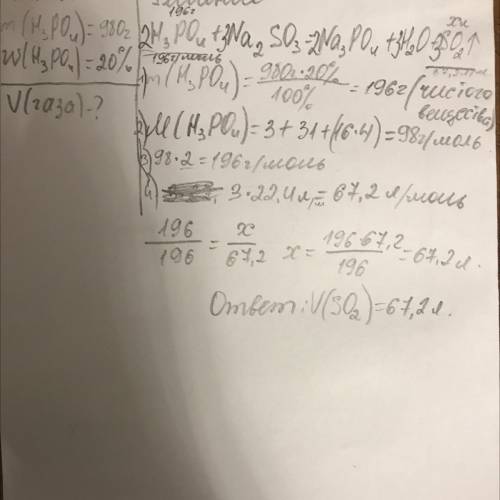 m(H₃PO₄)=980г
W(H₃PO₄)=20%
V(газа)-?
196г
х л
2H₃PO₄+3Na₂SO₃=2Na₃PO₄+3H₂O+3SO₂↑
196г/моль
1) m(H₃PO₄)=980г·20%/100%=196г(чистого вещества)
2) M(H₃PO₄)=3+31+(16·4)=98г/моль
3) 98·2=196г/моль
4) 3·22,4л=67,2л/моль
196/196=x/67,2 x=196·67,2/196=67,2л.
Ответ: V(SO₂)=67,2л.